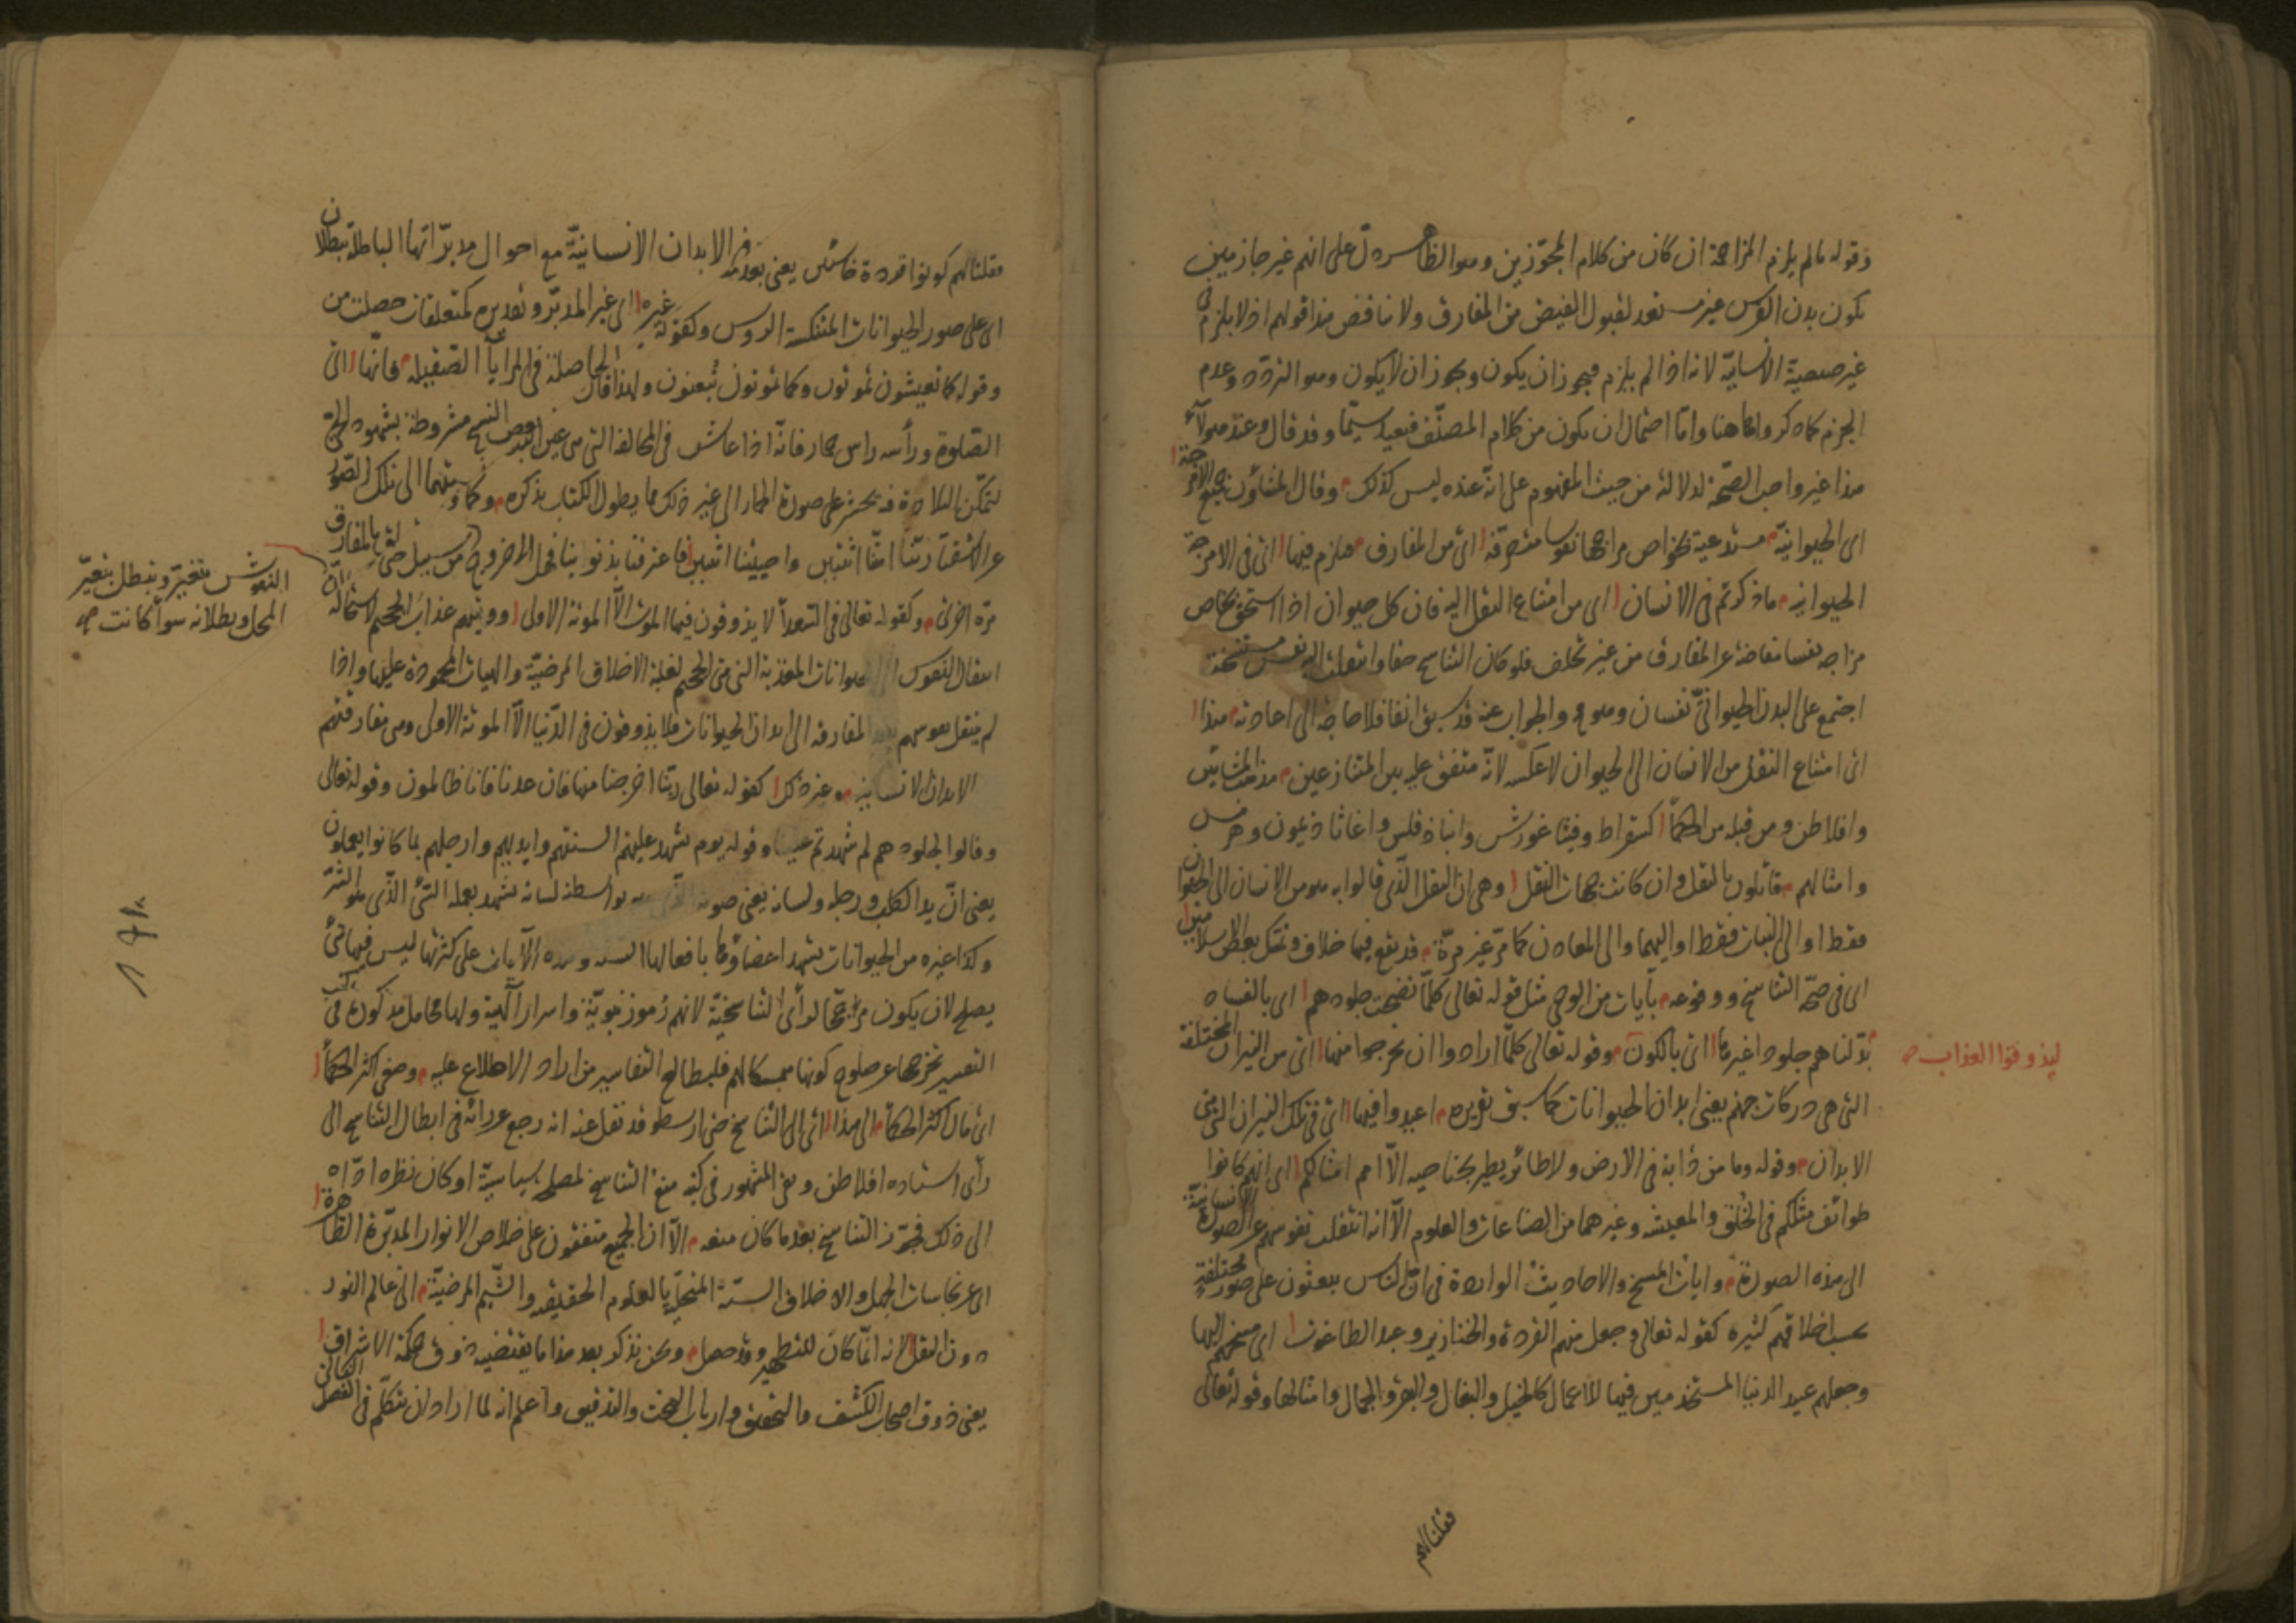 وقوله مالم يلزم المزاحمة ان كان من كلام المجوزين وهو الظاهر دل على انهم غير جازمين
بكون بدن الفرس غير مستعد لقبول الفيض من المفارق ولا يناقض هذا قولهم اذ لا يلزم في
غير صيصية الانسانية لانه اذا لم يلزم فيجوز ان يكون ويجوز ان لا يكون وهو التردد وعدم
الجزم كما ذكروا هاهنا واما احتمال ان يكون من كلام المصنف فبعيد سيما وقد قال وعند هولآء
هذا غير واجب الصحة لدلالته من حيث المفهوم على انه عنده ليس كذلك وقال المشاؤن جميع الامزجة
اى الحيوانية مستدعية بخواص مزاجها نفوسا متصرفة اى من المفارق فيلزم فيها اى فى الامزجة
الحيوانية ما ذكرتم فى الانسان اى من امتناع النقل اليه فان كل حيوان اذا استحق بخاص
مزاجه نفسا مفاضة عن المفارق من غير تخلف فلو كان التناسخ حقا وانتقلت اليه نفس مستنسخة
اجتمع على البدن الحيوانى نفسان وهو مح والجواب عنه قد سبق انفا فلا حاجة الى اعادته هذا
اى امتناع النقل من الانسان الى الحيوان لا عكسه لانه متفق عليه بين المتنازعين مذهب المشائين
وافلاطن ومن قبله من الحكمآ كسقراط وفيثاغورس وانباذقلس واغاثاذيمون وهرمس
وامثالهم قائلون بالنقل وان كانت جهات النقل وهى ان النقل الذى قالوا به هو من الانسان الى الحيوان
فقط او الى النبات فقط او اليهما والى المعادن كما مر غير مرة قد يقع فيها خلاف وتمسك بعض الاسلاميين
اى فى صحة التناسخ ووقوعه بآيات من الوحى مثل قوله تعالى كلما نضجت جلودهم اى بالفساد
بدلناهم جلودا غيرها اى بالكون وقوله تعالى كلما ارادوا ان يخرجوا منها اى من النيران المختلفة
ليذوقوا العذاب
التى هى دركات جهنم يعنى ابدان الحيوانات كما سبق تقريره اعيدوا فيها اى فى تلك النيران التى هى
الابدان وقوله وما من دابة فى الارض ولا طائر يطير بجناحيه الا امم امثالكم اى انهم كانوا
طوائف مثلكم فى الخلق والمعيشة وغيرهما من الصناعات والعلوم الا انه انتقلت نفوسهم عن الصورة الانسانية
الى هذه الصورة وايات المسخ والاحاديث الواردة فى ان الناس يبعثون على صور مختلفة
بحسب اخلاقهم كثيرة كقوله تعالى وجعل منهم القردة والخنازير وعبد الطاغوت اى مسخهم اليها
وجعلهم عبيد الدنيا المستخدمين فيها للاعمال كالخيل والبغال والبقر والجمال وامثالها وقوله تعالى
فقلنا لهم
فقلنا لهم كونوا قردة خاسئين يعنى بعد
فى الابدان الانسانية مع احوال مدبراتها الباطلة ببطلان
اى على صور الحيوانات المتنكسة الروس وكقوله
غيره اى غير المدبر وتقديره كمتعلقات حصلت من
وقوله كما تعيشون تموتون وكما تموتون تبعثون ولهذا قال
الحاصلة فى المرايآ الصقيلة فانها اى
الصلوة ورأسه راس حمار فانه اذا عاش فى المخالفة التى هى عين البلادة
النسخ مشروطة بشهود
لتمكن البلادة فيه يحشر على صورة الحمار الى غير ذلك مما يطول الكتاب بذكره وكما
الى تلك الصور
عن الاشقيآ ربنا امتنا اثنتين واحييتنا اثنتين فاعترفنا بذنوبنا فهل الى خروج من سبيل
بالمفارق
النفوس تتغير وتبطل بتغير
المحل وبطلانه سوآ كانت
مرة اخرى وكقوله تعالى فى السعدآ لا يذوقون فيها الموت الا الموتة الاولى ووقيهم عذاب الجحيم لاستحالة
انتقال النفوس الى الحيوانات المعذبة التى هى الجحيم لغلبة الاخلاق المرضية والهيات المحمودة عليها واذا
لم ينتقل نفوسهم بعد المفارقة الى ابدان الحيوانات فلا يذوقون فى الدنيا الا الموتة الاولى وهى مفارقتهم
الابدان الانسانية وغير ذلك كقوله تعالى ربنا اخرجنا منها فان عدنا فانا ظالمون وقوله تعالى
وقالوا لجلودهم لم شهدتم علينا وقوله يوم تشهد عليهم السنتهم وايديهم وارجلهم بما كانوا يعملون
يعنى ان يد الكلب ورجله ولسانه يعنى صوته الذى بواسطة لسانه تشهد بعمله السئ الذى هو الشر
وكذا غيره من الحيوانات تشهد اعضاؤها بافعالها السيئة وهذه الآيات على كثرتها ليس فيها شئ
يصلح لان يكون مرجحا لرأى التناسخية لانهم رموز نبوية واسرار الهية ولها محامل مذكورة فى كتب
التفسير تخرجها عن صلوح كونها متمسكا لهم فليطالع التفاسير من اراد الاطلاع عليه وصغى اكثر الحكمآ
اى مال اكثر الحكمآ الى هذا اى الى التناسخ حتى ارسطو قد نقل عنه انه رجع عن رائه فى ابطال التناسخ الى
رأى استاده افلاطن وفى المشهور فى كتبه منع التناسخ لمصلحة سياسية او كان نظره اداه
الى ذلك فجوز التناسخ بعد ما كان منعه الا ان الجميع متفقون على خلاص الانوار المدبرة الطاهرة
اى عن نجاسات الجهل والاخلاق السيئة المتحلية بالعلوم الحقيقية والشيم المرضية الى عالم النور
دون النقل لانه انما كان للتطهير وقد حصل ونحن نذكر بعد هذا ما يقتضيه ذوق حكمة الاشراق
يعنى ذوق اصحاب الكشف والتحقيق وارباب البحث والتدقيق واعلم انه لما اراد ان يتكلم فى الفصل الثانى